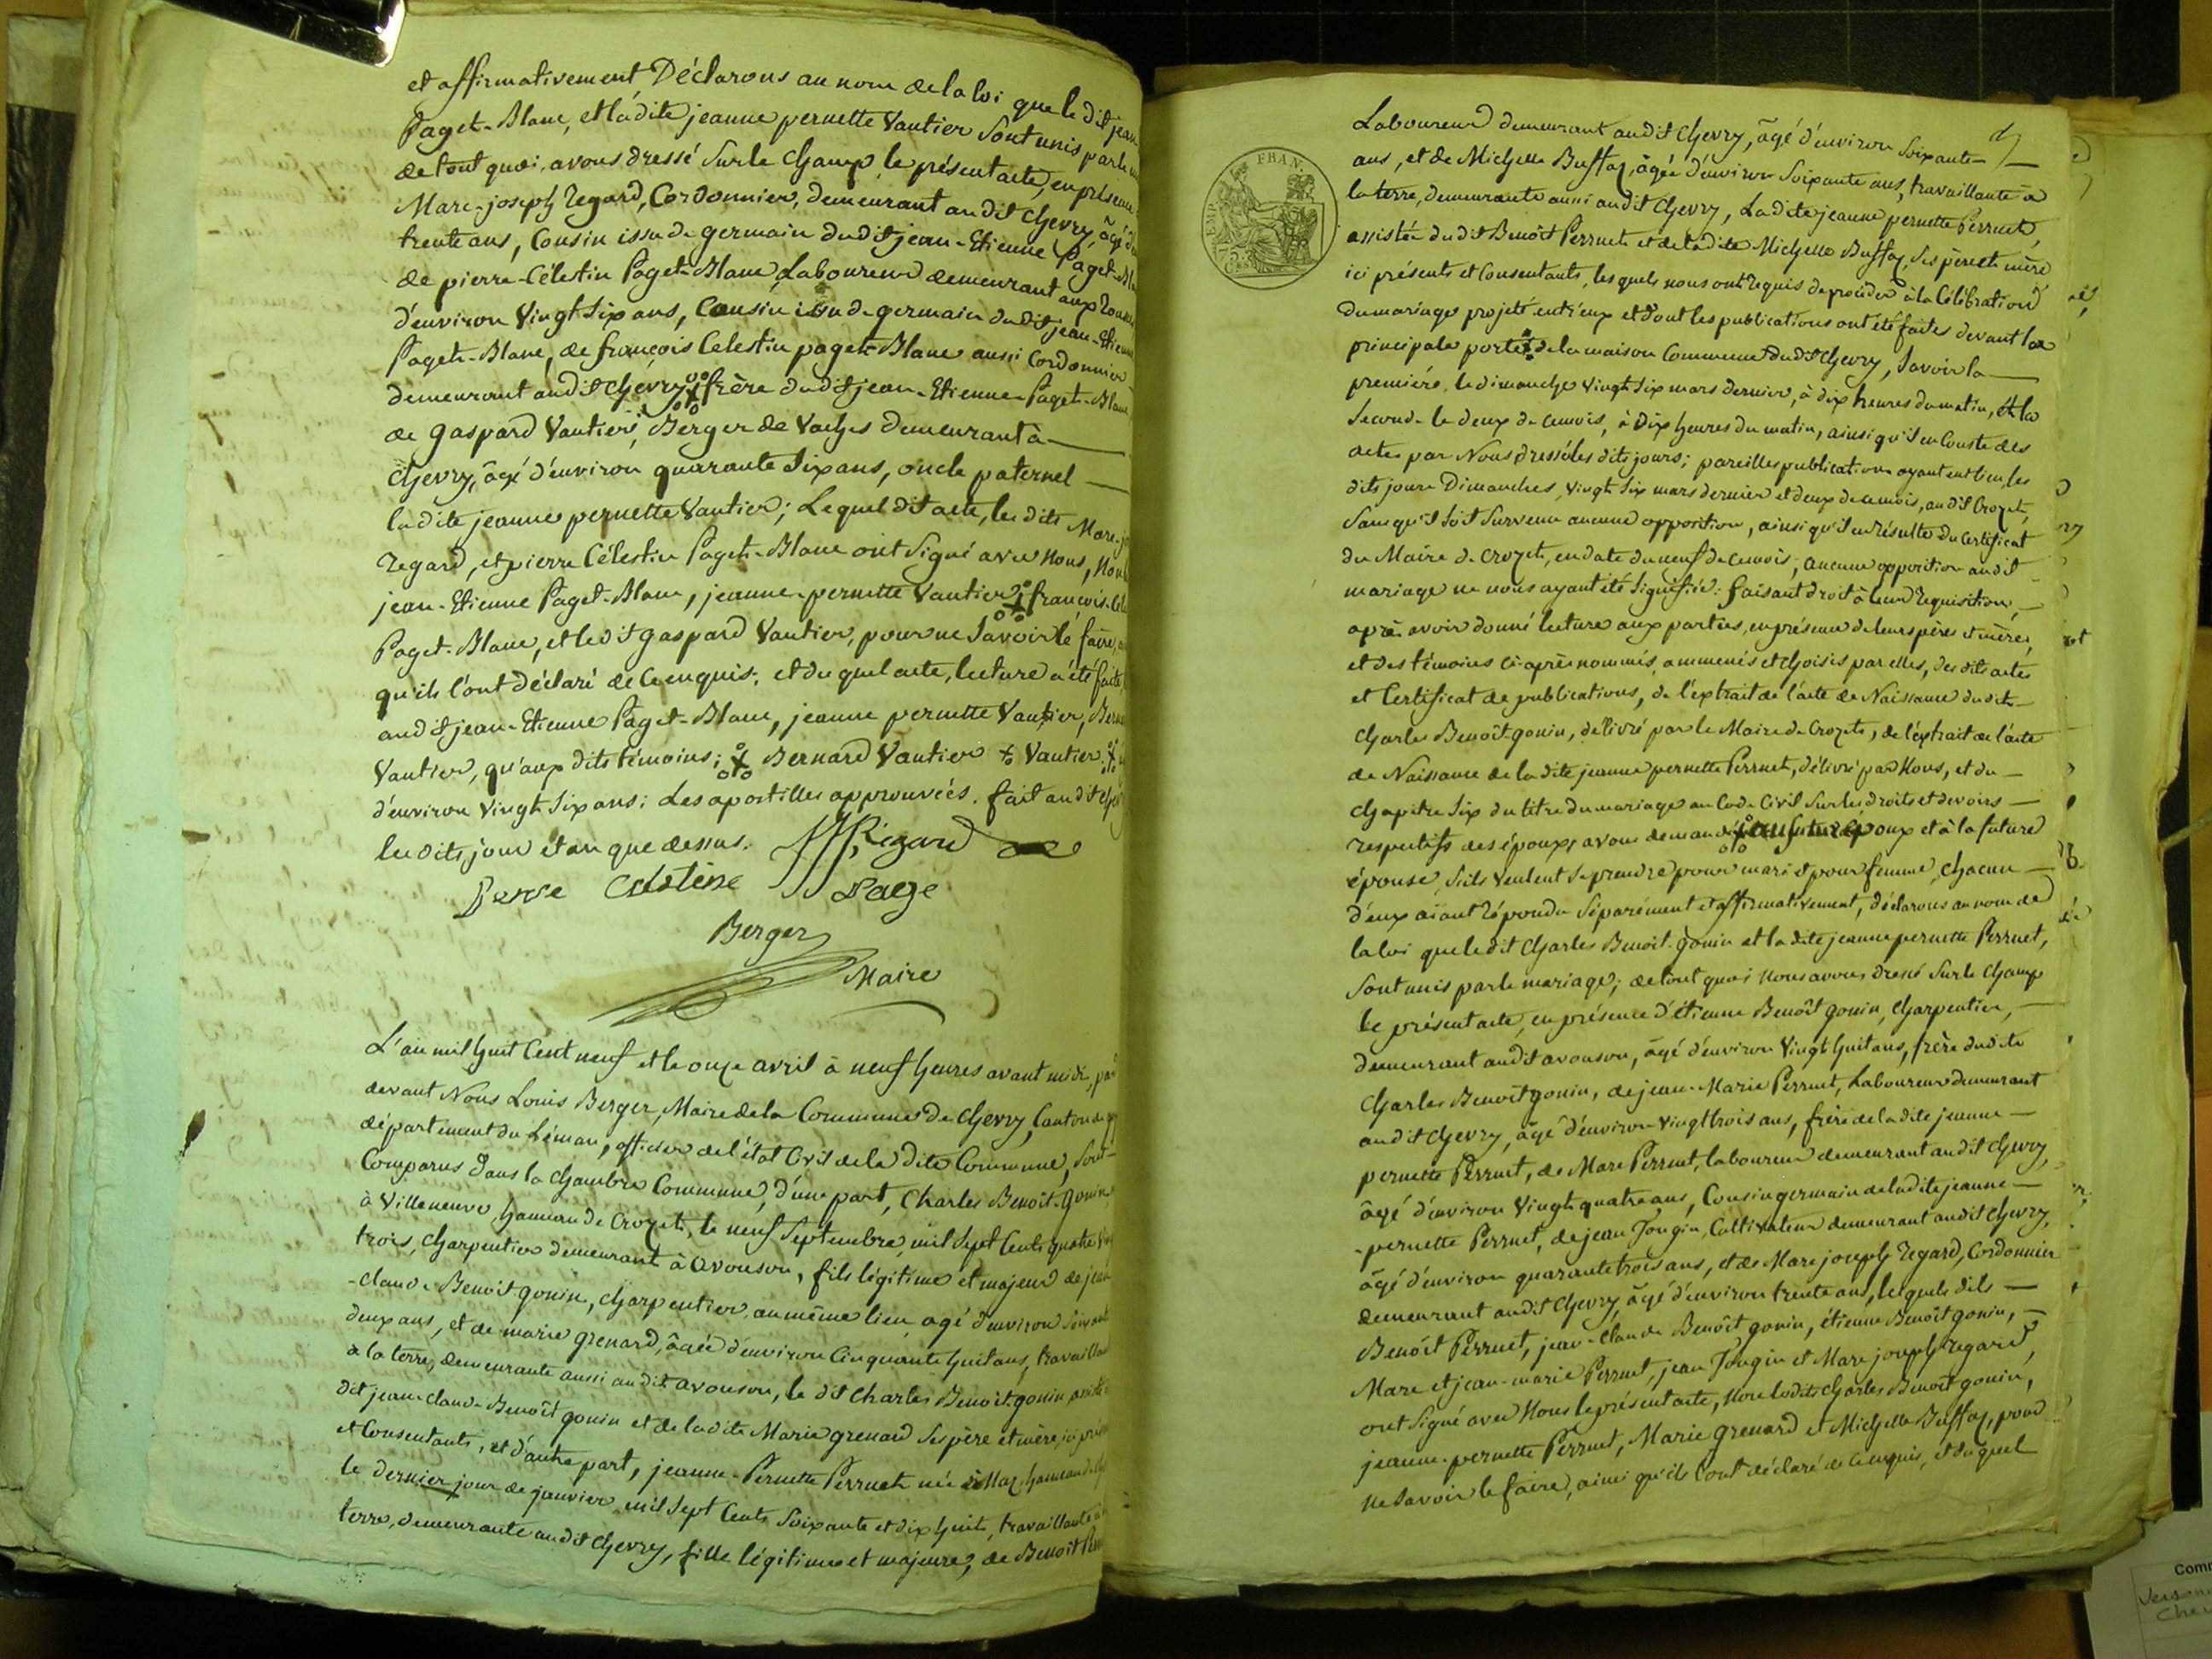 et affirmativement Déclarons au nom de la loi que le dit jean
Paget-Blanc, et la dite jeanne pernette Vautier Sont unis par le
de tout quoi, avons dressé Sur le Champ le présent acte, en présence
Marc-joseph Regard, Cordonnier, demeurant au dit Chevry, âgé
trente ans, Cousin issu de germain du dit jean-Etienne Paget-Bl
de pierre-Célestin Paget-Blanc, Laboureur demeurant aux
d'environ Vingt Six ans, Cousin issu de germain du dit jean-Etienne
Paget-Blanc, de françois Celestin paget-Blanc aussi Cordonnier
demeurant au dit Chevry frère du dit jean-Etienne-Paget-Blanc,
de gaspard Vautier, Berger de Vaches demeurant à
Chevry, âgé d'environ quarante Six ans, oncle paternel
la dite jeanne pernette Vautier; Lequel dit acte, les dits Marc-j
Regard, et pierre Célestin Paget-Blanc ont Signé avec Nous, Non
jean-Etienne Paget-Blanc, jeanne-pernette Vautier françois-Cél
Paget-Blanc, et le dit gaspard Vautier, pour ne Savoir le faire,
qu'ils l'ont déclaré de ce enquis; et du quel acte, lecture a été faite,
au dit jean-Etienne Paget-Blanc, jeanne pernette Vautier, Bern
Vautier, qu'aux dits témoins; Bernard Vautier + Vautier
d'environ Vingt Six ans; Les apostilles approuvées. fait au dit Che
les dits jour et an que dessus. Regard
Pierre Celestine Page
Berger
Maire
L'an mil huit Cent neuf et le onze avril à neuf heures avant midi, par
devant Nous Louis Berger, Maire de la Commune de Chevry, Canton de
département du Léman, officier de l'état Civil de la dite Commune, Sont
Comparus dans la Chambre Commune, d'une part, Charles Benoît-Gonin,
à Villeneuve, hameau de Crozet, le neuf Septembre, mil Sept Cents quatre
trois, Charpentier demeurant à avouson, fils légitime et majeur de jean
-claude Benoît gonin, Charpentier, au même lieu, agé d'environ Soixante
deux ans, et de marie grenard, âgée d'environ Cinquante huit ans, travaillant
à la terre, demeurante aussi au dit avouson, le dit Charles Benoît-gonin assisté
dit jean-claude Benoît gonin et de la dite Marie grenard Ses père et mère, ici prés
et Consentants, et d'autre part, jeanne-Pernette Perruet née à Naz, hameau de
le dernier jour de janvier mil Sept Cents Soixante et dix huit, travaillante à
terre, demeurante au dit Chevry, fille légitime et majeure, de Benoît
Laboureur demeurant au dit Chevry, âgé d'environ Soixante
ans, et de Michelle Buffaz, âgée d'environ Soixante ans, travaillante à
la terre, demeurante aussi au dit Chevry, La dite jeanne pernette Perruet,
assistée du dit Benoît Perruet et de la dite Michelle Buffaz, Ses père et mère
ici présents et Consentants, les quels nous ont requis de procéder à la Célébration
du mariage projeté entr'eux et dont les publications ont été faites devant la
principale porte de la maison Commune du dit Chevry, Savoir la
première, le dimanche Vingt Six mars dernier, à dix heures du matin, Et la
Seconde le deux de ce mois, à Dix heures du matin, ainsi qu'il en Conste des
actes par Nous dressés les dits jours; pareilles publications ayant eut lieu, les
dits jours Dimanches, Vingt Six mars dernier et deux de ce mois, au dit Crozet,
Sans qu'il Soit Survenu aucune opposition, ainsi qu'il en résulte du Certificat
du Maire de Crozet, en date du neuf de ce mois; aucune opposition au dit
mariage ne nous ayant été Signifiée: faisant droit à leur Requisition,
après avoir donné lecture aux parties, en présence de leurs pères et mères,
et des témoins ci-après nommés, ammenés et Choisis par elles, des dits actes
et Certificat de publications, de l'extrait de l'acte de Naissance du dit
Charles Benoît gonin, délivré par le Maire de Crozet, de l'extrait de l'acte
de Naissance de la dite jeanne pernette Perruet, délivré par Nous, et du
Chapitre Six du titre du mariage au Code Civil Sur les droits et devoirs
respectifs des époux, avons demandé au futur époux et à la future
épouse, S'ils veulent Se prendre pour mari et pour femme, Chacun
d'eux aïant répondu Séparément et affirmativement, déclarons au nom de
la loi que le dit Charles Benoît-gonin et la dite jeanne pernette Perruet,
Sont unis par le mariage; de tout quoi Nous avons dressé Sur le Champ
le présent acte, en présence d'étienne Benoît gonin, Charpentier,
demeurant au dit avouson, âgé d'environ Vingt huit ans, frère du dit
Charles Benoît gonin, de jean-Marie Perruet, Laboureur demeurant
au dit Chevry, âgé d'environ Vingt trois ans, frère de la dite jeanne
pernette Perruet, de Marc Perruet, laboureur demeurant au dit Chevry,
âgé d'environ Vingt quatre ans, Cousin germain de la dite jeanne
-pernette Perruet, de jean Jougin, Cultivateur demeurant au dit Chevry,
âgé d'environ quarante trois ans, et de Marc joseph Regard, Cordonnier
demeurant au dit Chevry, âgé d'environ trente ans, lesquels dits
Benoît Perruet, jean-claude Benoît gonin, étienne Benoît gonin,
Marc et jean-marie Perruet, jean Jougin et Marc joseph Regard,
ont Signé avec Nous le présent acte, Non les dits Charles Benoît gonin,
jeanne-pernette Perruet, Marie grenard et Michelle Buffaz, pour
ne Savoir le faire, ainsi qu'ils l'ont déclaré de ce enquis, et du quel